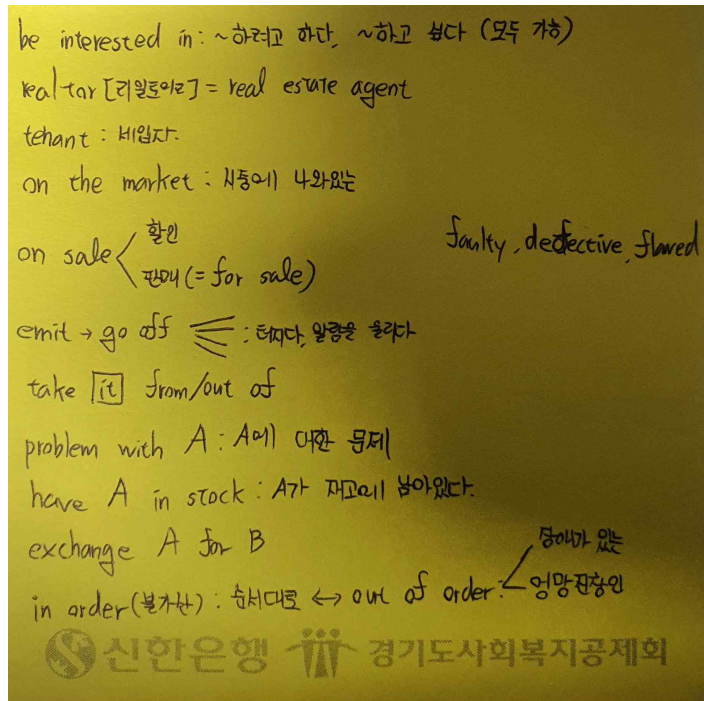 be interested in : ~하려고 하다, ~하고 싶다 (모두 가능)
realtor [리얼토어ㄹ] = real estate agent
tenant : 세입자.
on the market : 시중에 나와있는
on sale < 할인
판매 (= for sale)
faulty, defective, flawed
emit → go off : 터지다, 알람을 울리다
take it from/out of
problem with A : A에 대한 문제
have A in stock : A가 재고에 남아있다.
exchange A for B
in order (불가산) : 순서대로 ↔ out of order : < 장애가 있는
엉망진창인
신한은행 경기도사회복지공제회